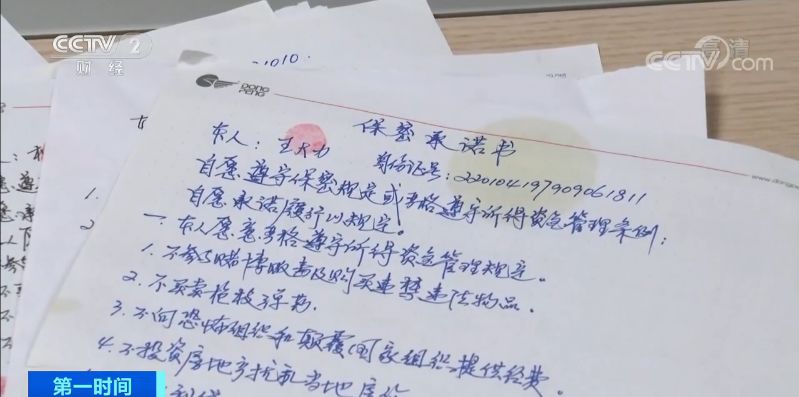 CCTV 2
财经
CCTV高清com
1010.
DONG
PENG
保密承诺书
本人：王大力 身份证号：220104197909061811
自愿遵守保密规定或严格遵守所得资金管理条例；
自愿承诺履行以规定。
一、本人愿意严格遵守所得资金管理规定。
1.不参与赌博吸毒及购买违禁违法物品。
2.不买卖枪枝弹药.
3.不向恐怖组织和颠覆国家组织提供经费。
4.不投资房地产扰乱当地房价
第一时间